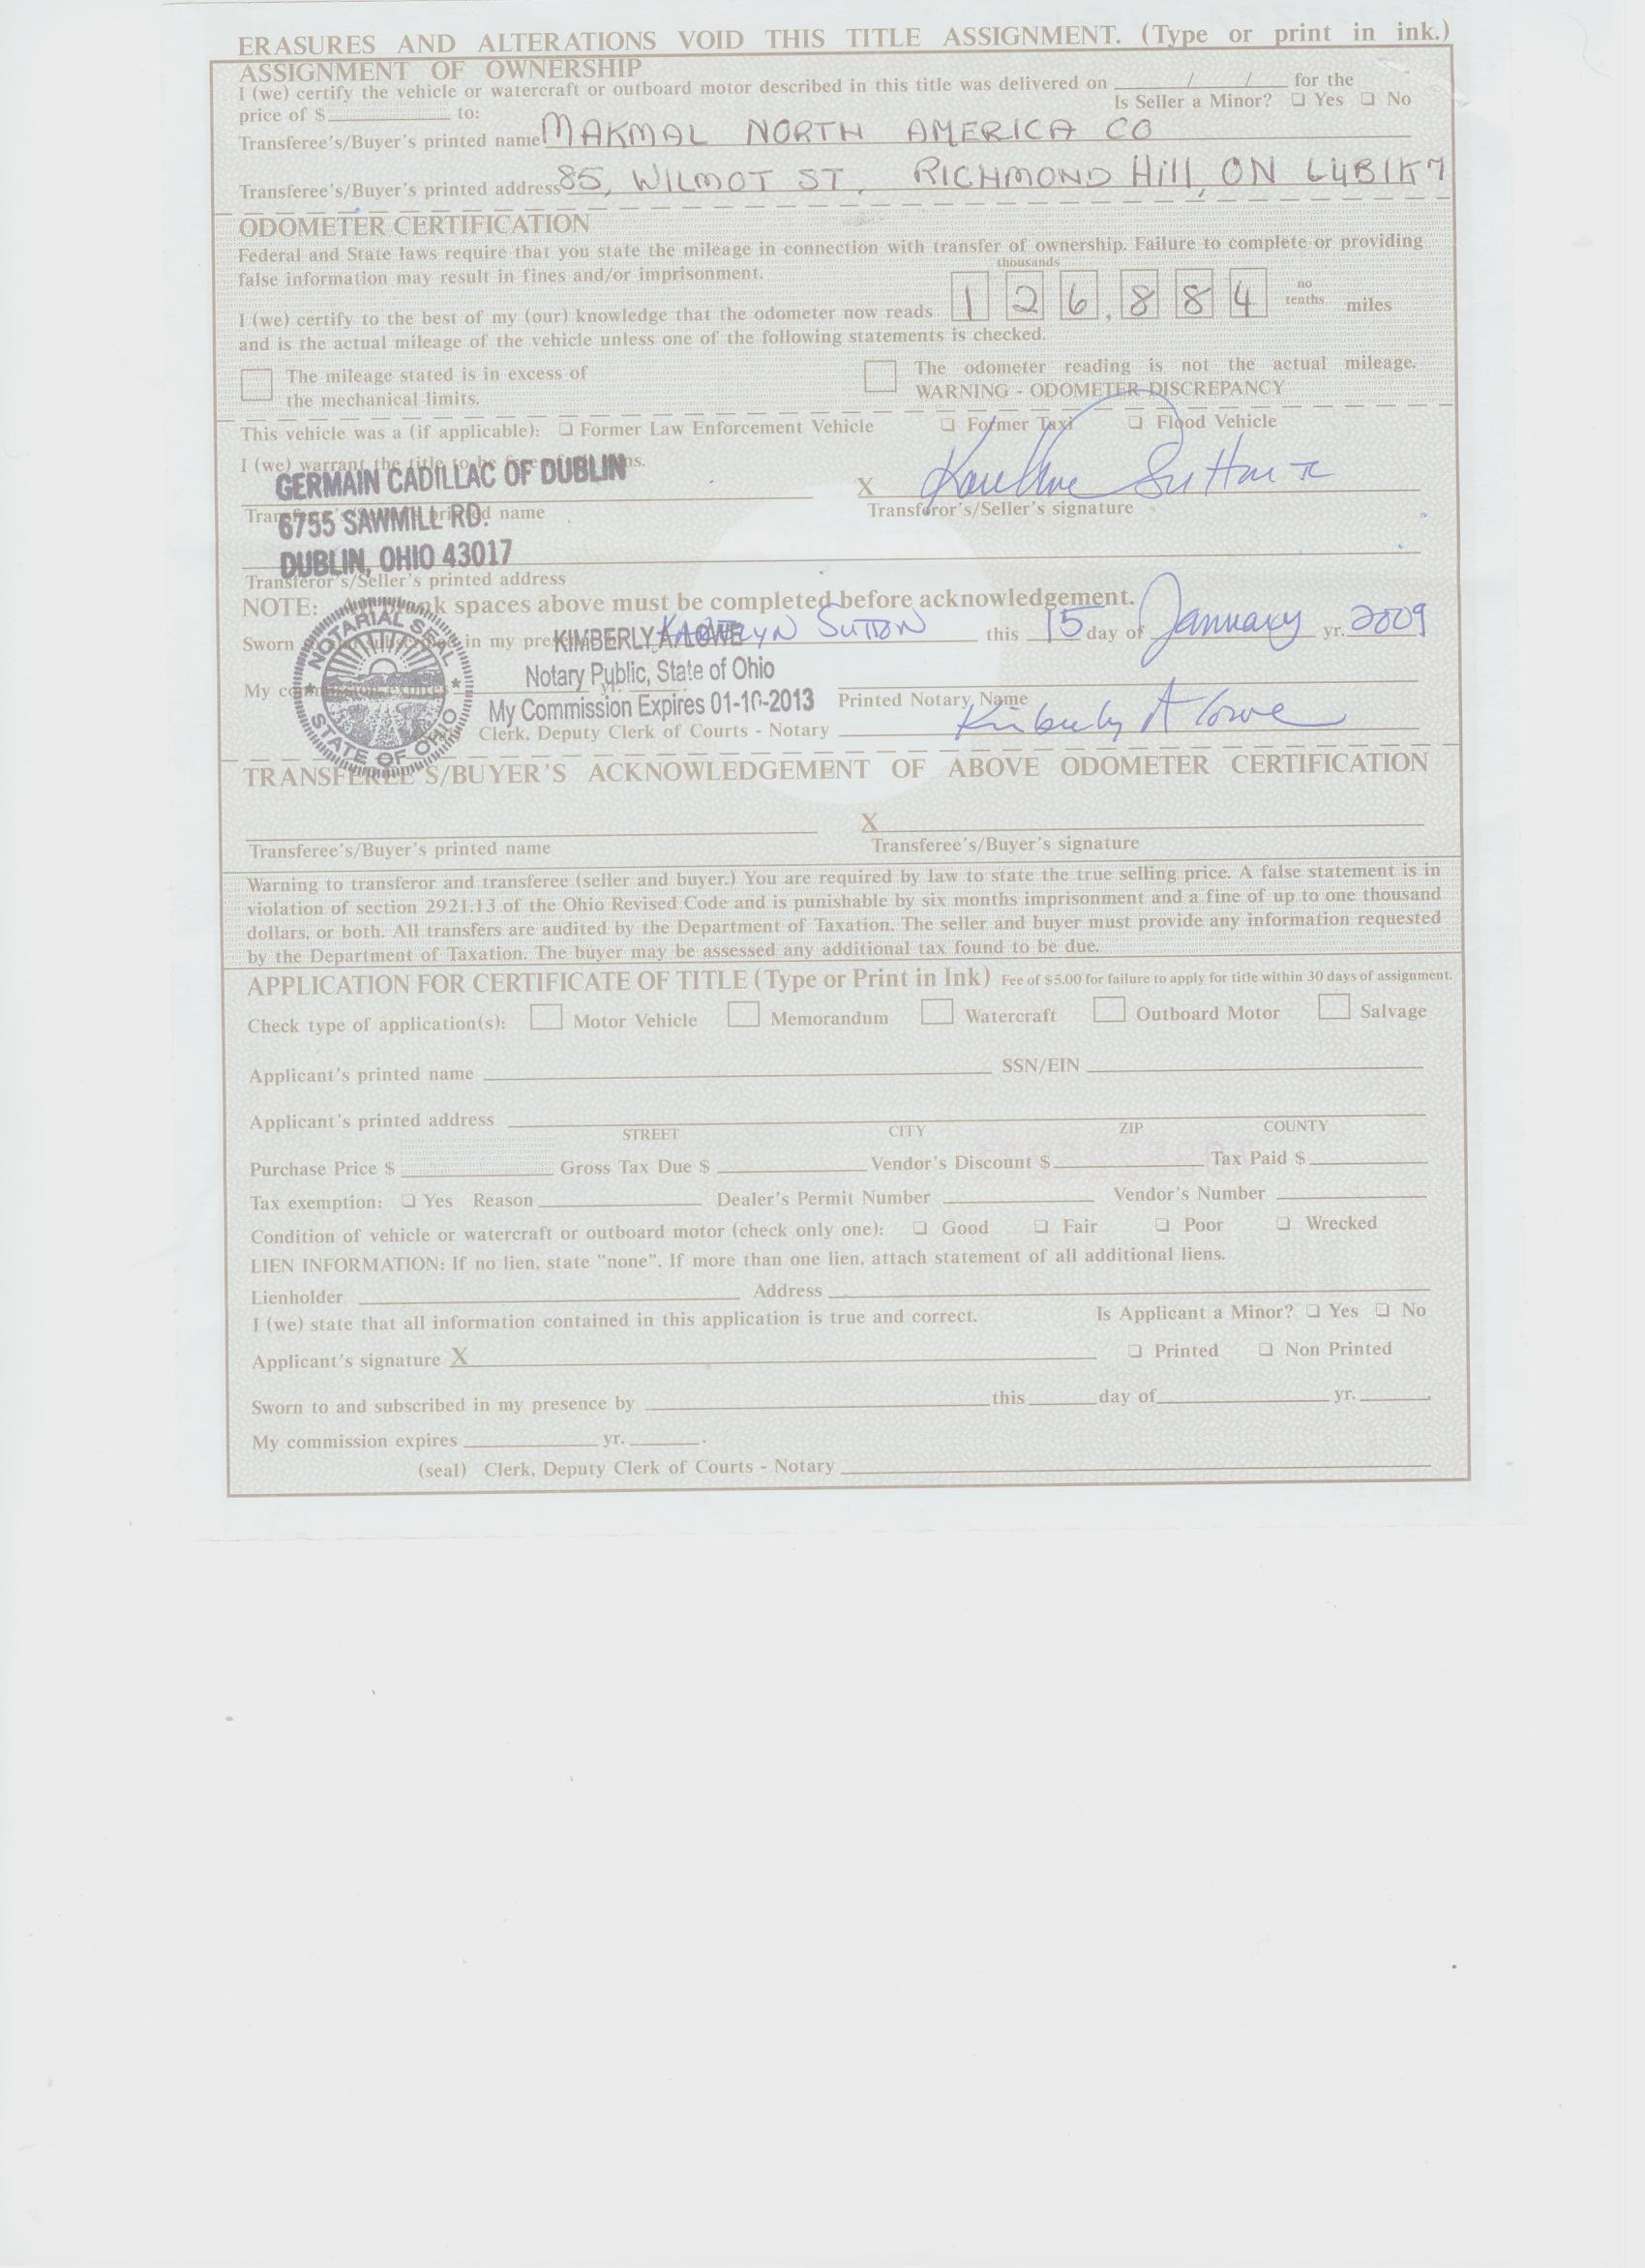 ERASURES AND ALTERATIONS VOID THIS TITLE ASSIGNMENT. (Type or print in ink.)
ASSIGNMENT OF OWNERSHIP
I (we) certify the vehicle or watercraft or outboard motor described in this title was delivered on ____/____/____ for the
price of $____________ to: Is Seller a Minor? ❏ Yes ❏ No
Transferee's/Buyer's printed name MAKMAL NORTH AMERICA CO
Transferee's/Buyer's printed address 85, WILMOT ST, RICHMOND Hill, ON L4B1K7
ODOMETER CERTIFICATION
Federal and State laws require that you state the mileage in connection with transfer of ownership. Failure to complete or providing
false information may result in fines and/or imprisonment.
thousands
I (we) certify to the best of my (our) knowledge that the odometer now reads 1 2 6 , 8 8 4 no tenths miles
and is the actual mileage of the vehicle unless one of the following statements is checked.
The mileage stated is in excess of the mechanical limits.
The odometer reading is not the actual mileage.
WARNING - ODOMETER DISCREPANCY
This vehicle was a (if applicable): ❏ Former Law Enforcement Vehicle ❏ Former Taxi ❏ Flood Vehicle
I (we) warrant the title to be
GERMAIN CADILLAC OF DUBLIN
X
Transferor's/Seller's signature
printed name
6755 SAWMILL RD.
DUBLIN, OHIO 43017
Transferor's/Seller's printed address
NOTE: spaces above must be completed before acknowledgement.
Sworn in my SUTTON this 15 day of January yr. 2009
KIMBERLY A LOWE
Notary Public, State of Ohio
My Commission Expires 01-10-2013
NOTARIAL SEAL
STATE OF OHIO
My commission expires
Printed Notary Name
Clerk, Deputy Clerk of Courts - Notary Kimberly A Lowe
TRANSFEREE'S/BUYER'S ACKNOWLEDGEMENT OF ABOVE ODOMETER CERTIFICATION
X
Transferee's/Buyer's printed name Transferee's/Buyer's signature
Warning to transferor and transferee (seller and buyer.) You are required by law to state the true selling price. A false statement is in
violation of section 2921.13 of the Ohio Revised Code and is punishable by six months imprisonment and a fine of up to one thousand
dollars, or both. All transfers are audited by the Department of Taxation. The seller and buyer must provide any information requested
by the Department of Taxation. The buyer may be assessed any additional tax found to be due.
APPLICATION FOR CERTIFICATE OF TITLE (Type or Print in Ink) Fee of $5.00 for failure to apply for title within 30 days of assignment.
Check type of application(s): Motor Vehicle Memorandum Watercraft Outboard Motor Salvage
Applicant's printed name ____________ SSN/EIN ____________
Applicant's printed address ____________
STREET CITY ZIP COUNTY
Purchase Price $ ________ Gross Tax Due $ ________ Vendor's Discount $ ________ Tax Paid $ ________
Tax exemption: ❏ Yes Reason ________ Dealer's Permit Number ________ Vendor's Number ________
Condition of vehicle or watercraft or outboard motor (check only one): ❏ Good ❏ Fair ❏ Poor ❏ Wrecked
LIEN INFORMATION: If no lien, state "none". If more than one lien, attach statement of all additional liens.
Lienholder ____________ Address ____________
I (we) state that all information contained in this application is true and correct. Is Applicant a Minor? ❏ Yes ❏ No
Applicant's signature X____________ ❏ Printed ❏ Non Printed
Sworn to and subscribed in my presence by ____________ this ____ day of ________ yr. ____.
My commission expires ________ yr. ____.
(seal) Clerk, Deputy Clerk of Courts - Notary ____________